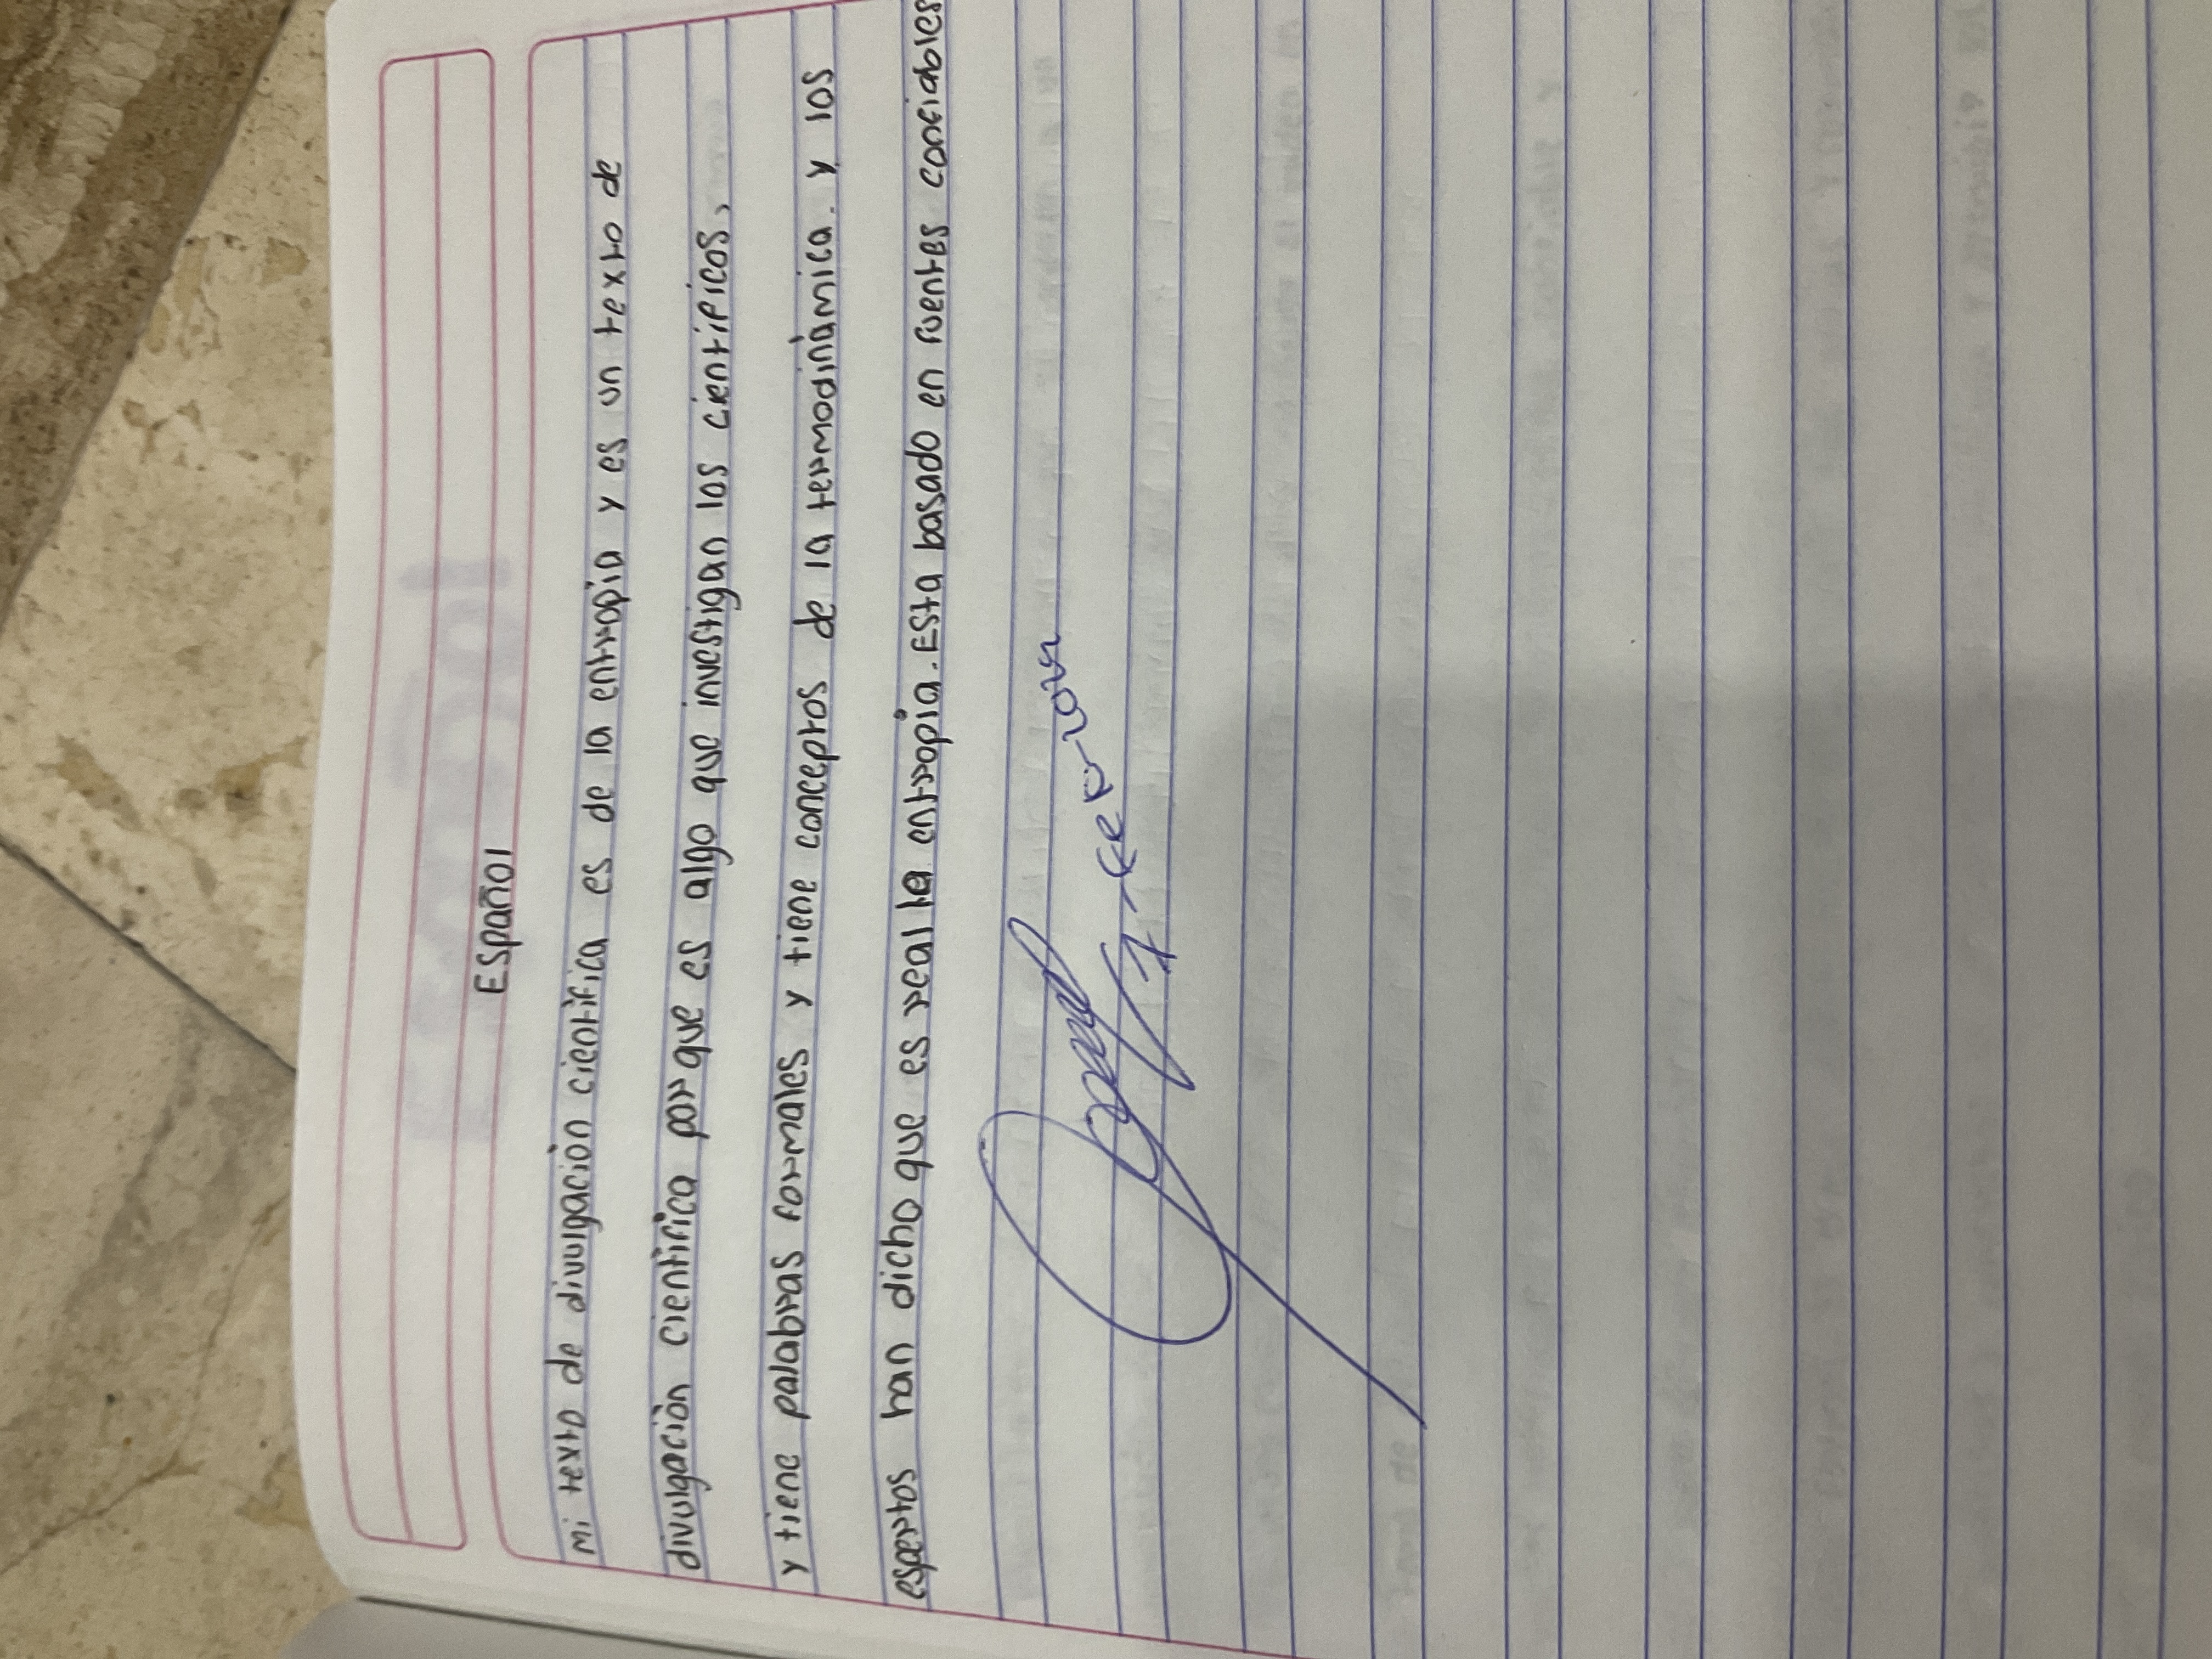 Español
mi texto de divulgación cientifica es de la entropia y es un texto de
divulgación cientifica por que es algo que investigan los cientificos,
y tiene palabras formales y tiene conceptos de la termodinámica. y los
espertos han dicho que es real la entropia. Esta basado en fuentes confiables